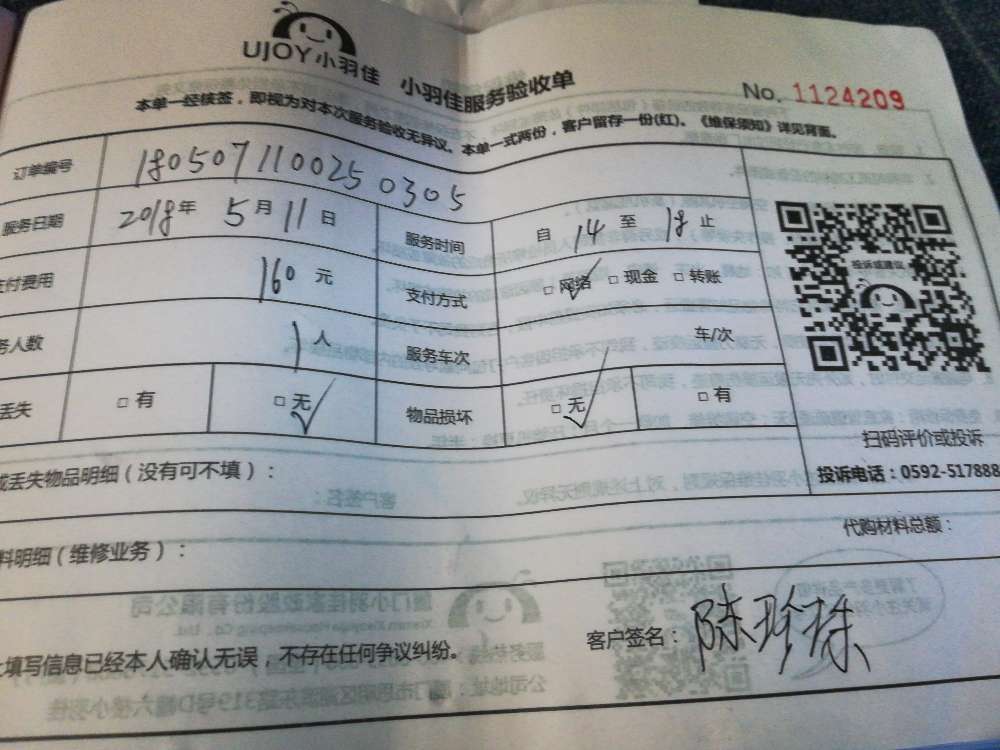 UJOY小羽佳 小羽佳服务验收单
No. 1124209
本单一经核签，即视为对本次服务验收无异议。本单一式两份，客户留存一份(红)。《维保须知》详见背面。
订单编号 180507110025 0305
服务日期 2018年 5月 11日 服务时间 自 14 至 18 止
支付费用 160 元 支付方式 □网络 □现金 □转账
务人数 1 人 服务车次 车/次
丢失 □有 □无 物品损坏 □无 □有
投诉或建议
扫码评价或投诉
投诉电话：0592-517888
或丢失物品明细（没有可不填）：
代购材料总额：
料明细（维修业务）：
上填写信息已经本人确认无误，不存在任何争议纠纷。
客户签名：陈珍珠